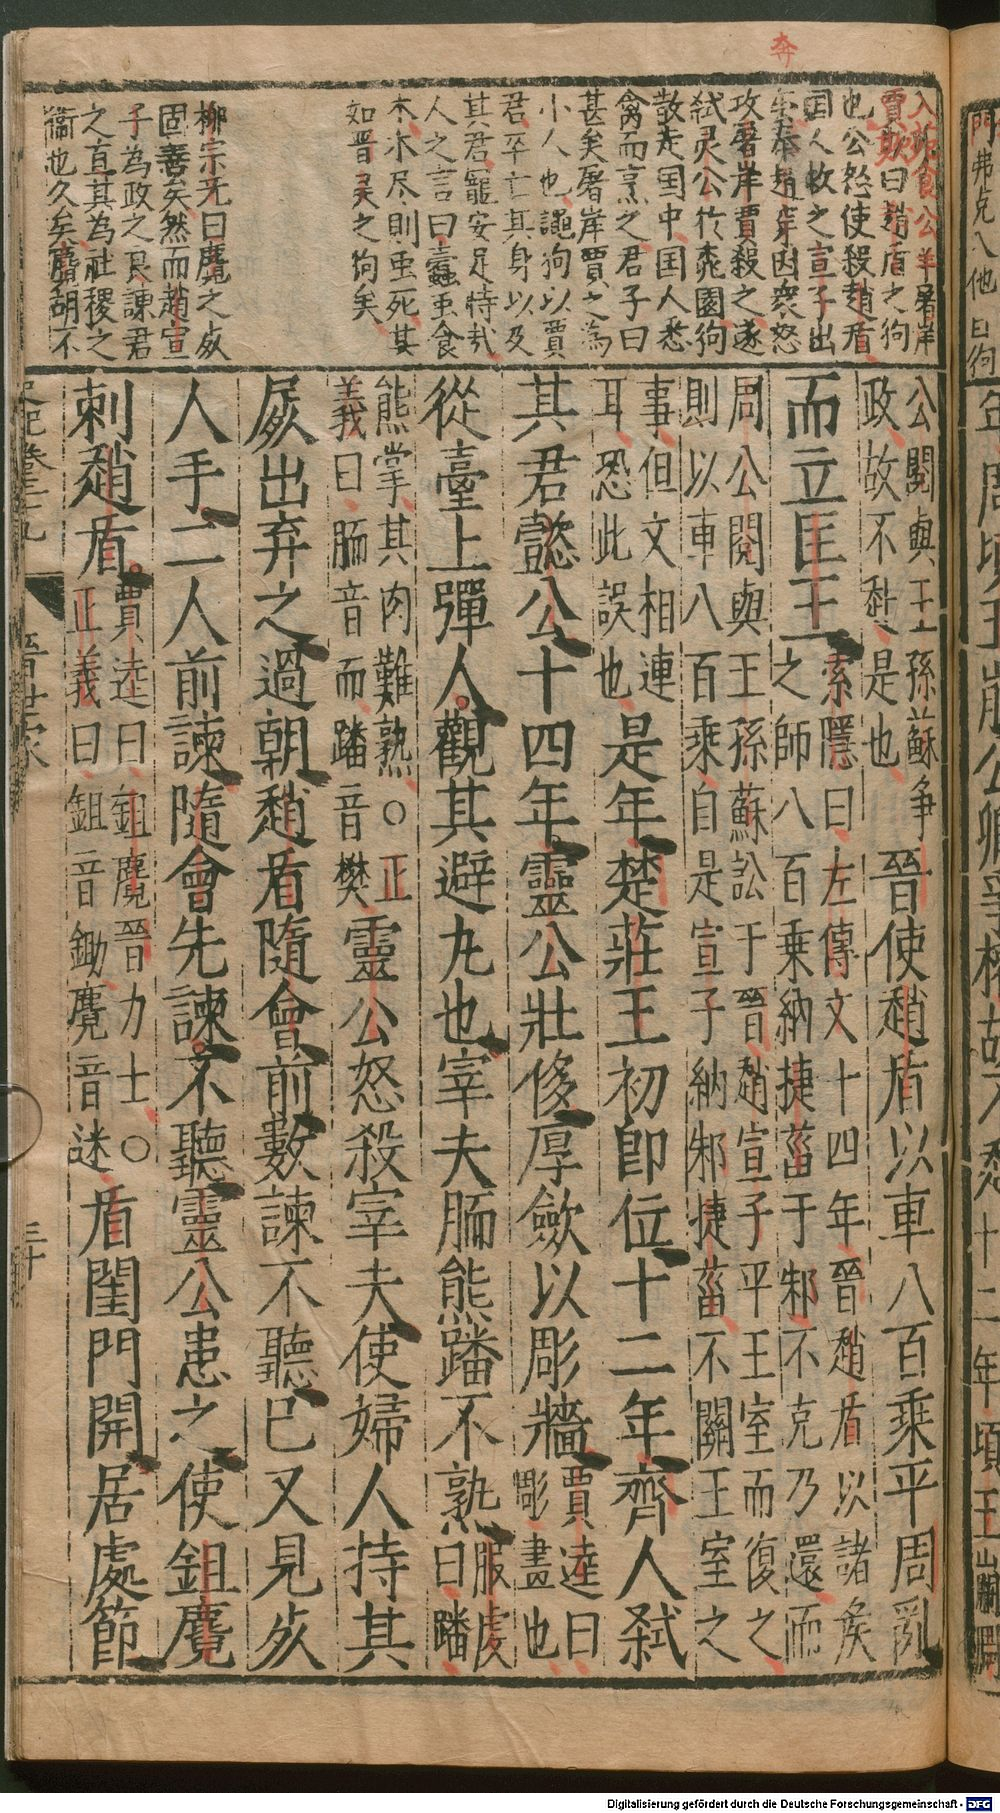 奔
門弗克入他日狗
年周頃王崩公卿爭權故不赴
入苑食公羊屠岸
賈欺曰趙盾之狗
也公怒使殺趙盾
国人救之宣子出
趙穿因衆怒
攻屠岸賈殺之遂
弑灵公於桃園狗
散走国中国人悉
禽而烹之君子曰
甚矣屠岸賈之為
小人也狗以賈
君卒亡其身以及
其君寵安足恃㢤
人之言曰蠹虫食
木木尽則虫死其
如晋矦之狗矣
柳宗元曰麑之死
固善矣然而趙宣
子為政之良諫君
之直其為社稷之
衞也久矣麑胡不
公閱與王孫蘇爭
政故不赴是也
晉使趙盾以車八百乘平周亂
而立匡王
索隱曰左傳文十四年晉趙盾以諸矦
之師八百乘納捷菑于邾不克乃還而
周公閱與王孫蘇訟于晉趙宣子平王室而復之
則以車八百乘自是宣子納邾捷菑不關王室之
事但文相連
耳恐此誤也
是年楚莊王初卽位十二年齊人弑
其君懿公十四年靈公壯侈厚斂以彫牆
賈逵曰
彫畫也
從臺上彈人觀其避丸也宰夫胹熊蹯不熟
服虔
曰蹯
熊掌其肉難熟○正
義曰胹音而蹯音樊
靈公怒殺宰夫使婦人持其
屍出弃之過朝趙盾隨會前數諫不聽已又見死
人手二人前諫隨會先諫不聽靈公患之使鉏麑
刺趙盾
賈逵曰鉏麑晉力士○
正義曰鉏音鋤麑音迷
盾閨門開居處節
史記卷三十九
晉世家
三十
Digitalisierung gefördert durch die Deutsche Forschungsgemeinschaft - DFG